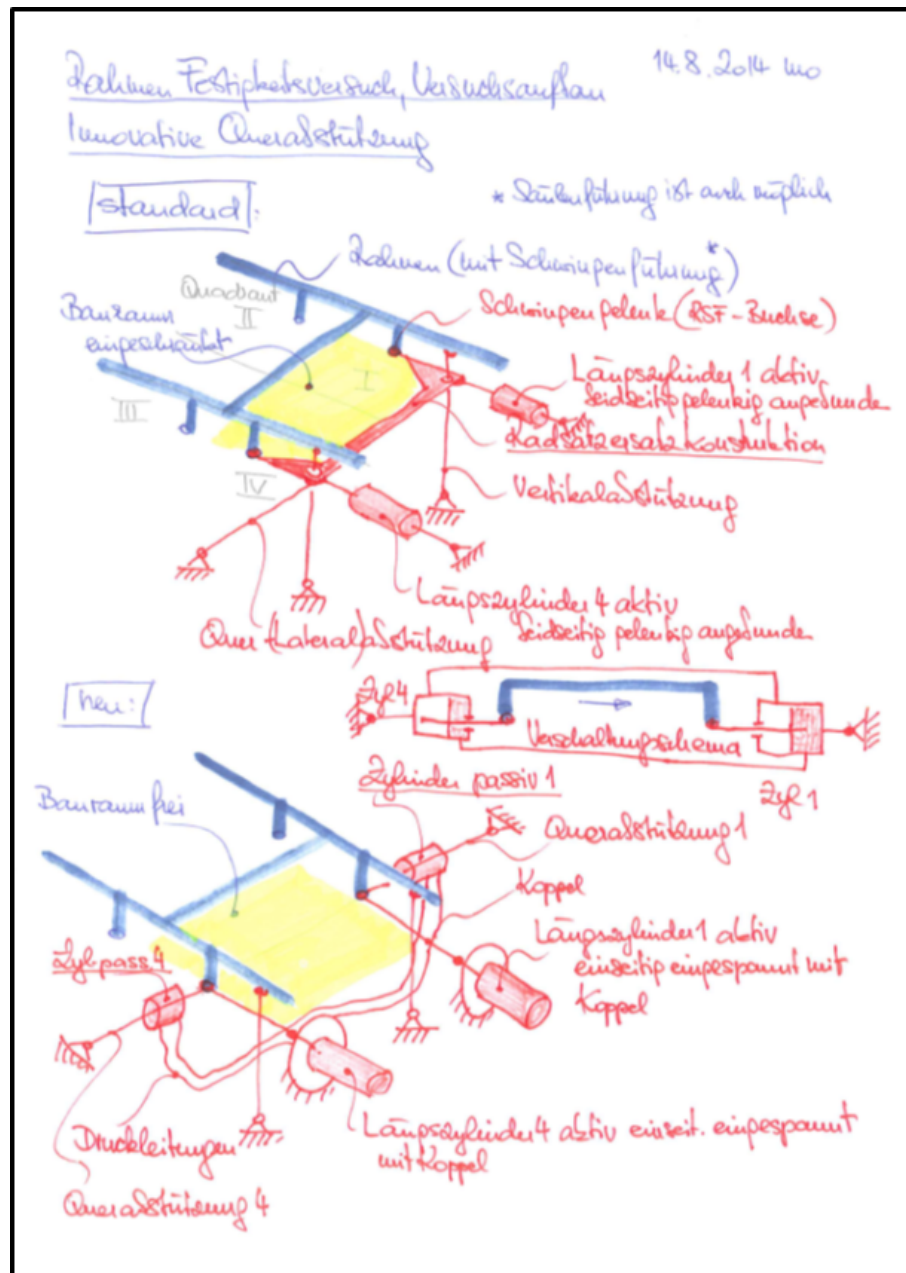 14.8.2014 mo
Rahmen Festigkeitsversuch, Versuchsaufbau
Innovative Querabstützung
standard:
* Säulenführung ist auch möglich
Rahmen (mit Schwingenführung*)
Quadrant
II
Bauraum
eingeschränkt
Schwingengelenk (RSF-Buchse)
I
Längszylinder 1 aktiv
beidseitig gelenkig angebunden
III
Radsatzersatzkonstruktion
IV
Vertikalabstützung
Längszylinder 4 aktiv
beidseitig gelenkig angebunden
Quer-(Lateral)abstützung
neu:
Zyl 4
Verschaltungsschema
Zyl 1
Zylinder passiv 1
Bauraum frei
Querabstützung 1
Koppel
Längszylinder 1 aktiv
einseitig eingespannt mit
Koppel
Zyl. pass. 4
Druckleitungen
Längszylinder 4 aktiv einseit. eingespannt
mit Koppel
Querabstützung 4